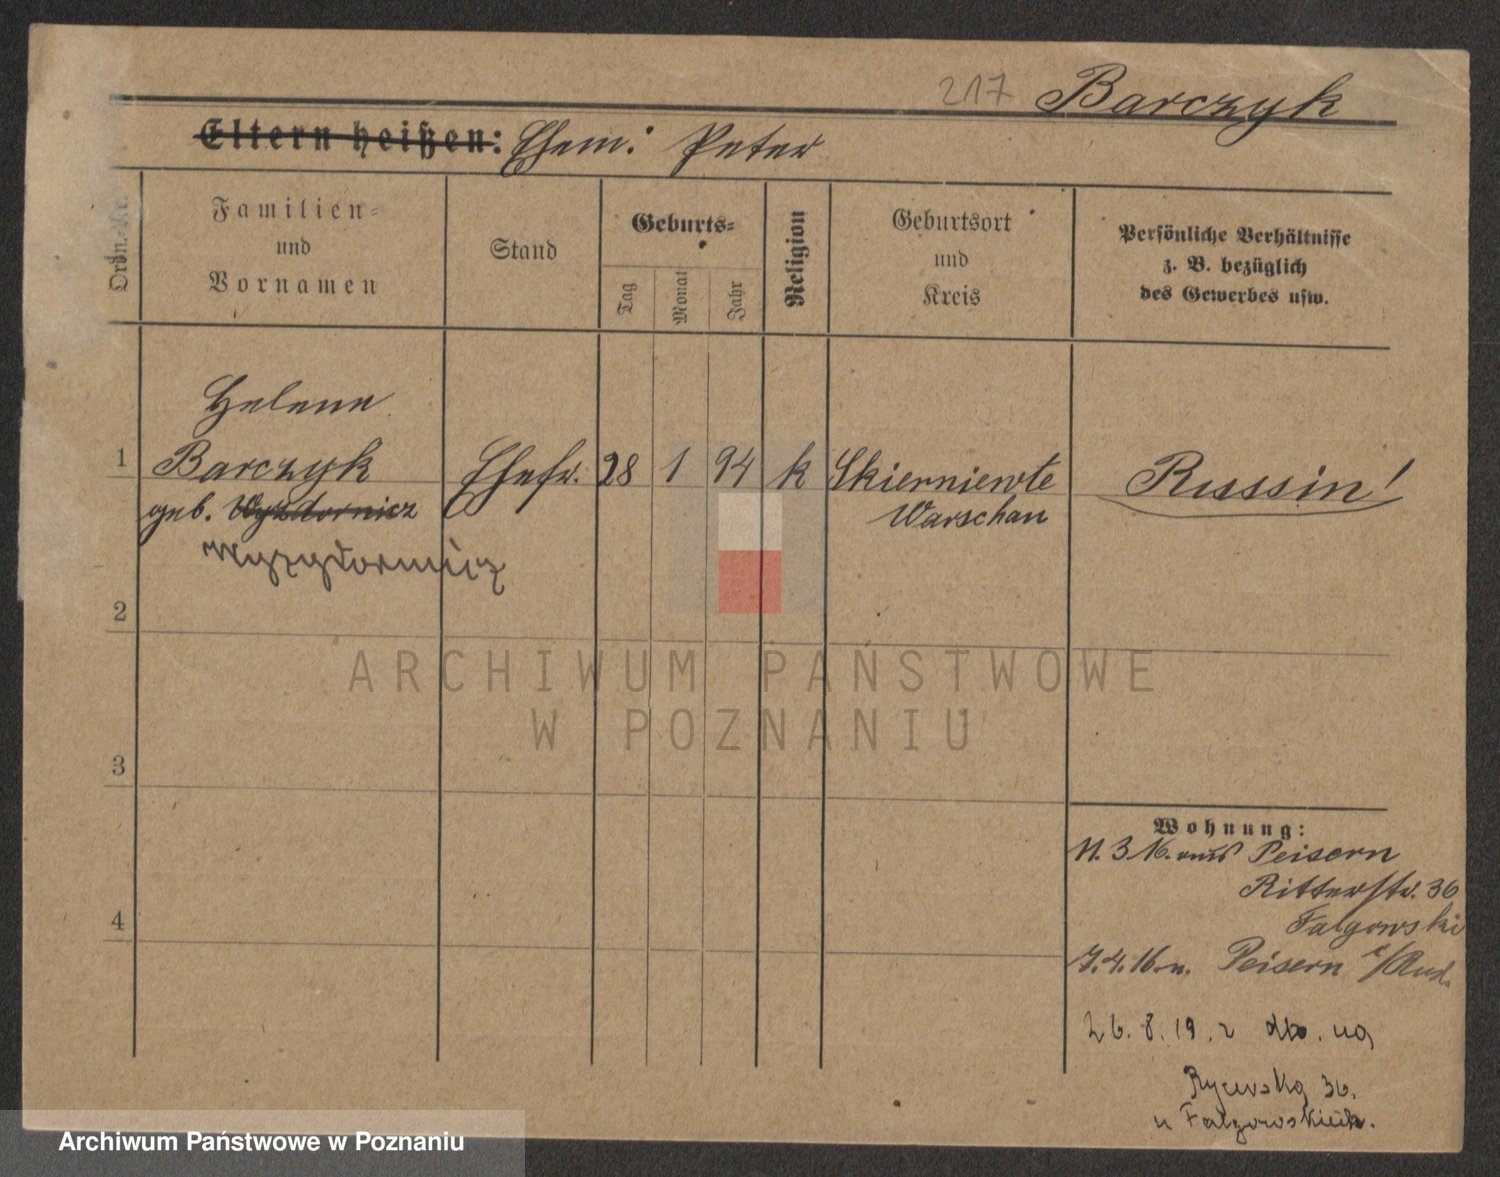 217 Barczyk
Eltern heißen: Ehem: Peter
Ordn.-Nr.
Familien-
und
Vornamen
Stand
Geburts-
Tag
Monat
Jahr
Religion
Geburtsort
und
Kreis
Persönliche Verhältnisse
z. B. bezüglich
des Gewerbes usw.
Helene
1 Barczyk Ehefr. 28 1 94 k Skierniewte Russin!
geb. Wyzdornicz Warschau
2
3
4
Wohnung:
11.3.16. aus Peisern
Ritterstr. 36
Falgowski
7.4.16. n. Peisern
26.8.19. z na
Rycerską 36.
u Falgowskich.
ARCHIWUM PAŃSTWOWE
W POZNANIU
Archiwum Państwowe w Poznaniu